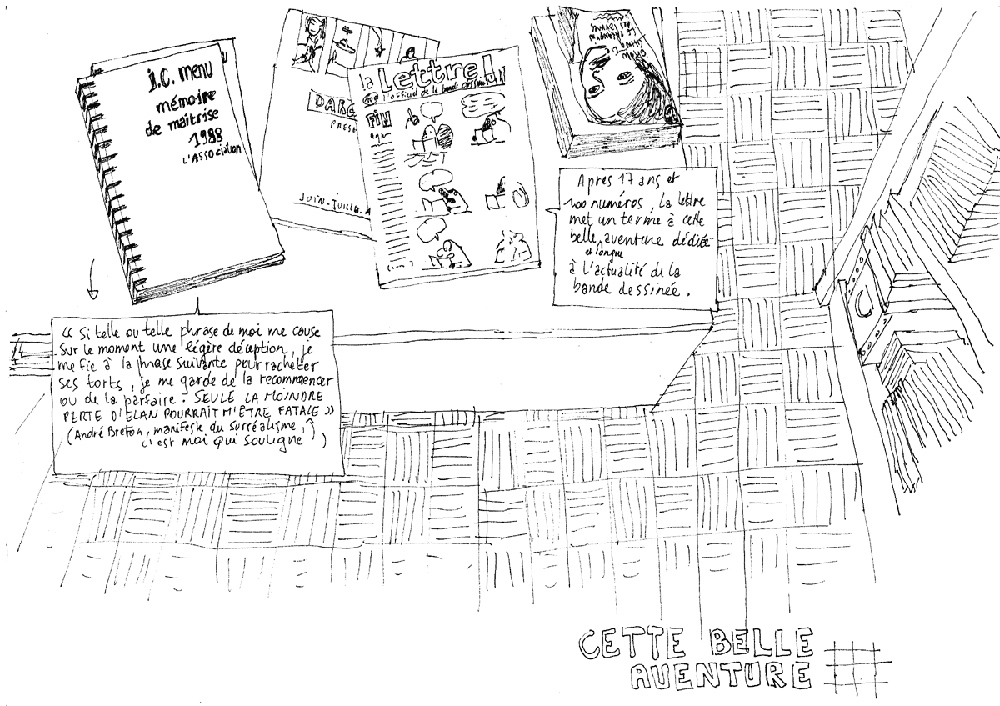 J.C. MENU
mémoire
de maîtrise
1988
L'Association
DARG
PRESE
JUIN-JUILL
la Lettre
Après 17 ans et
100 numéros, La lettre
met un terme à cette
belle aventure dédiée
et longue
à l'actualité de la
bande dessinée.
« Si telle ou telle phrase de moi me cause
sur le moment une légère déception, je
me fie à la phrase suivante pour racheter
ses torts, je me garde de la recommencer
ou de la parfaire. SEULE LA MOINDRE
PERTE D'ÉLAN POURRAIT M'ÊTRE FATALE »
(André Breton, manifeste du surréalisme,
c'est moi qui souligne)
CETTE BELLE
AVENTURE